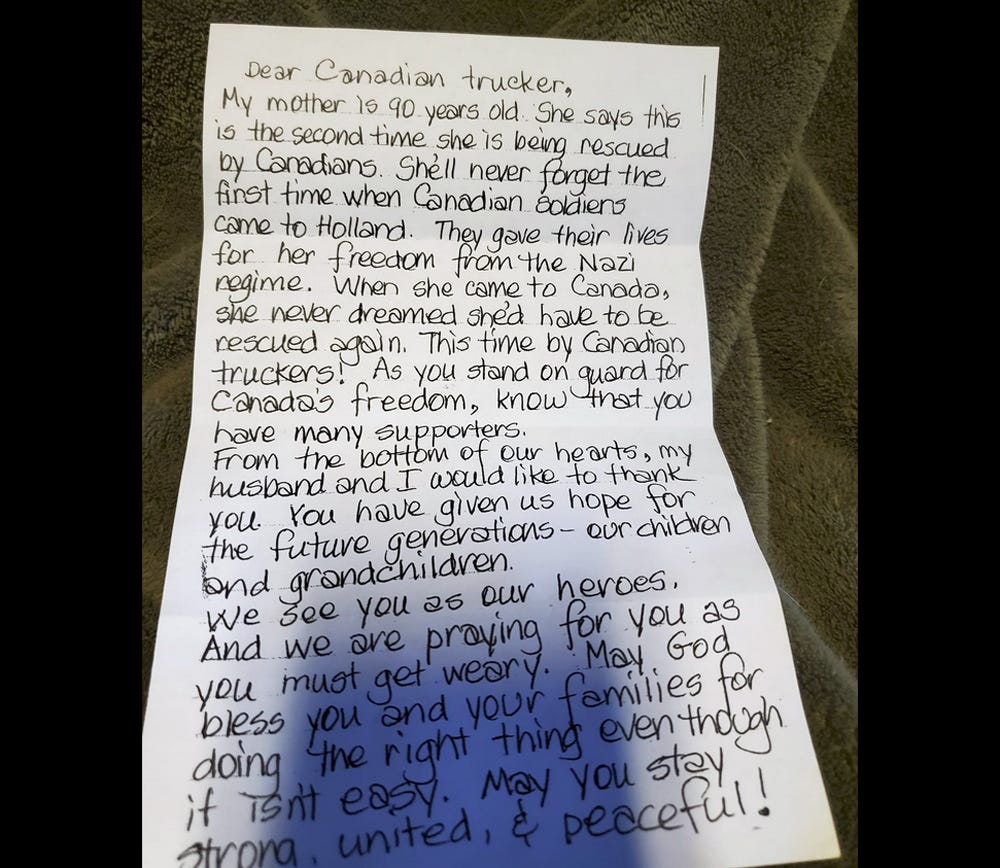 Dear Canadian trucker,
My mother is 90 years old. She says this
is the second time she is being rescued
by Canadians. She'll never forget the
first time when Canadian soldiers
came to Holland. They gave their lives
for her freedom from the Nazi
regime. When she came to Canada,
she never dreamed she'd have to be
rescued again. This time by Canadian
truckers! As you stand on guard for
Canada's freedom, know that you
have many supporters.
From the bottom of our hearts, my
husband and I would like to thank
you. You have given us hope for
the future generations - our children
and grandchildren.
We see you as our heroes.
And we are praying for you as
you must get weary. May God
bless you and your families for
doing the right thing even though
it isn't easy. May you stay
strong, united, & peaceful!